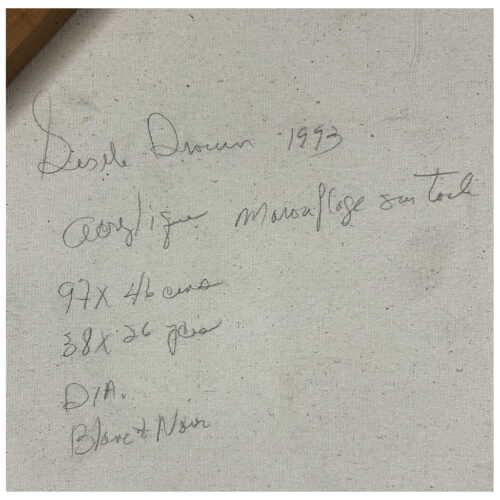 Gisele Drouin 1993
Acrylique Marouflage sur toile
97 X 46 cms
38 X 26 pces
DIA.
Blanc & Noir